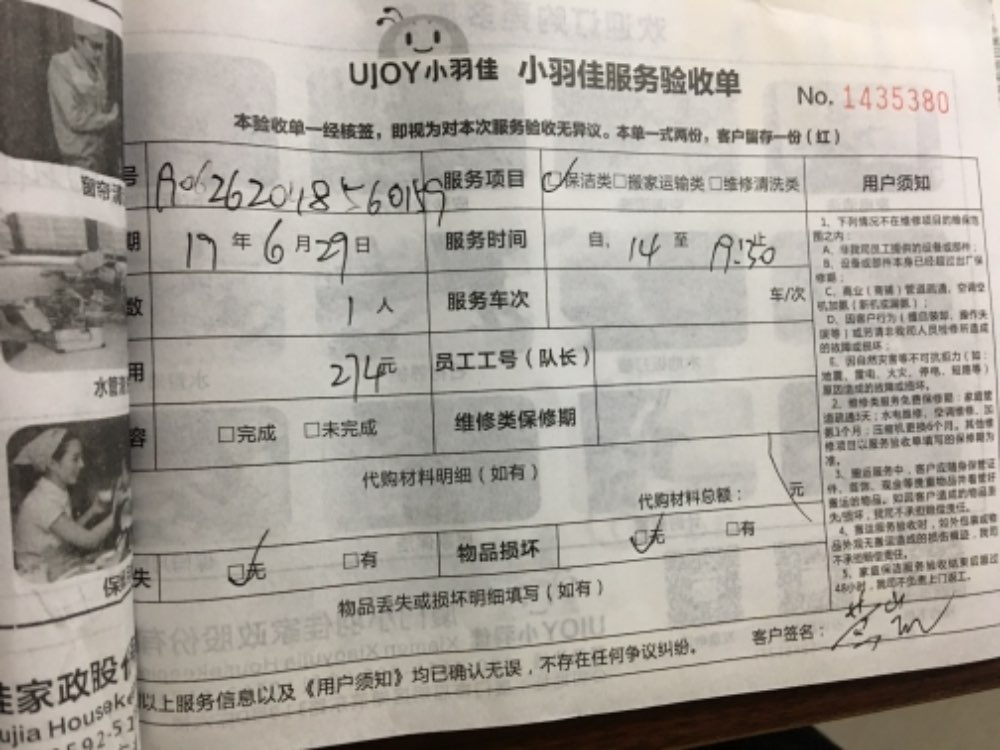 UJOY小羽佳 小羽佳服务验收单
No. 1435380
本验收单一经核签，即视为对本次服务验收无异议。本单一式两份，客户留存一份（红）
号 A06262018560159 服务项目 保洁类□搬家运输类□维修清洗类 用户须知
期 17年6月29日 服务时间 自，14至19:30止
数 1人 服务车次 车/次
用 274元 员工工号（队长）
容 □完成 □未完成 维修类保修期
代购材料明细（如有）
代购材料总额： 元
失 □无 □有 物品损坏 □无 □有
物品丢失或损坏明细填写（如有）
客户签名：
以上服务信息以及《用户须知》均已确认无误，不存在任何争议纠纷。
1、下列情况不在维修项目的维保范
围之内：
A、非我司员工提供的设备或部件；
B、设备或部件本身已经超过出厂保
修期；
C、商业（商铺）管道疏通，空调空
机加氨（新机或漏氨）；
D、因客户行为（擅自装卸、操作失
误等）或另请非我司人员检修所造成
的故障或损坏；
E、因自然灾害等不可抗拒力（如：
地震、雷电、火灾、停电、短路等）
原因造成的故障或损坏。
2、维修类服务免费保修期：家庭管
道疏通3天；水电维修，空调维修、加
氨1个月；压缩机更换6个月。其他维
修项目以服务验收单填写的保修期为
准。
3、搬运服务中，客户应随身保管证
件、首饰、现金等贵重物品并看管好
搬运的物品。如因客户造成的物品丢
失/损坏，我司不承担赔偿责任。
4、搬运服务验收时，如外包装或物
品外观无搬运造成的损伤痕迹，我司
不承担赔偿责任。
5、家庭保洁服务验收结束后超过
48小时，我司不负责上门返工。
窗帘清
水管清
保
佳家政股份
ujia House
592-51